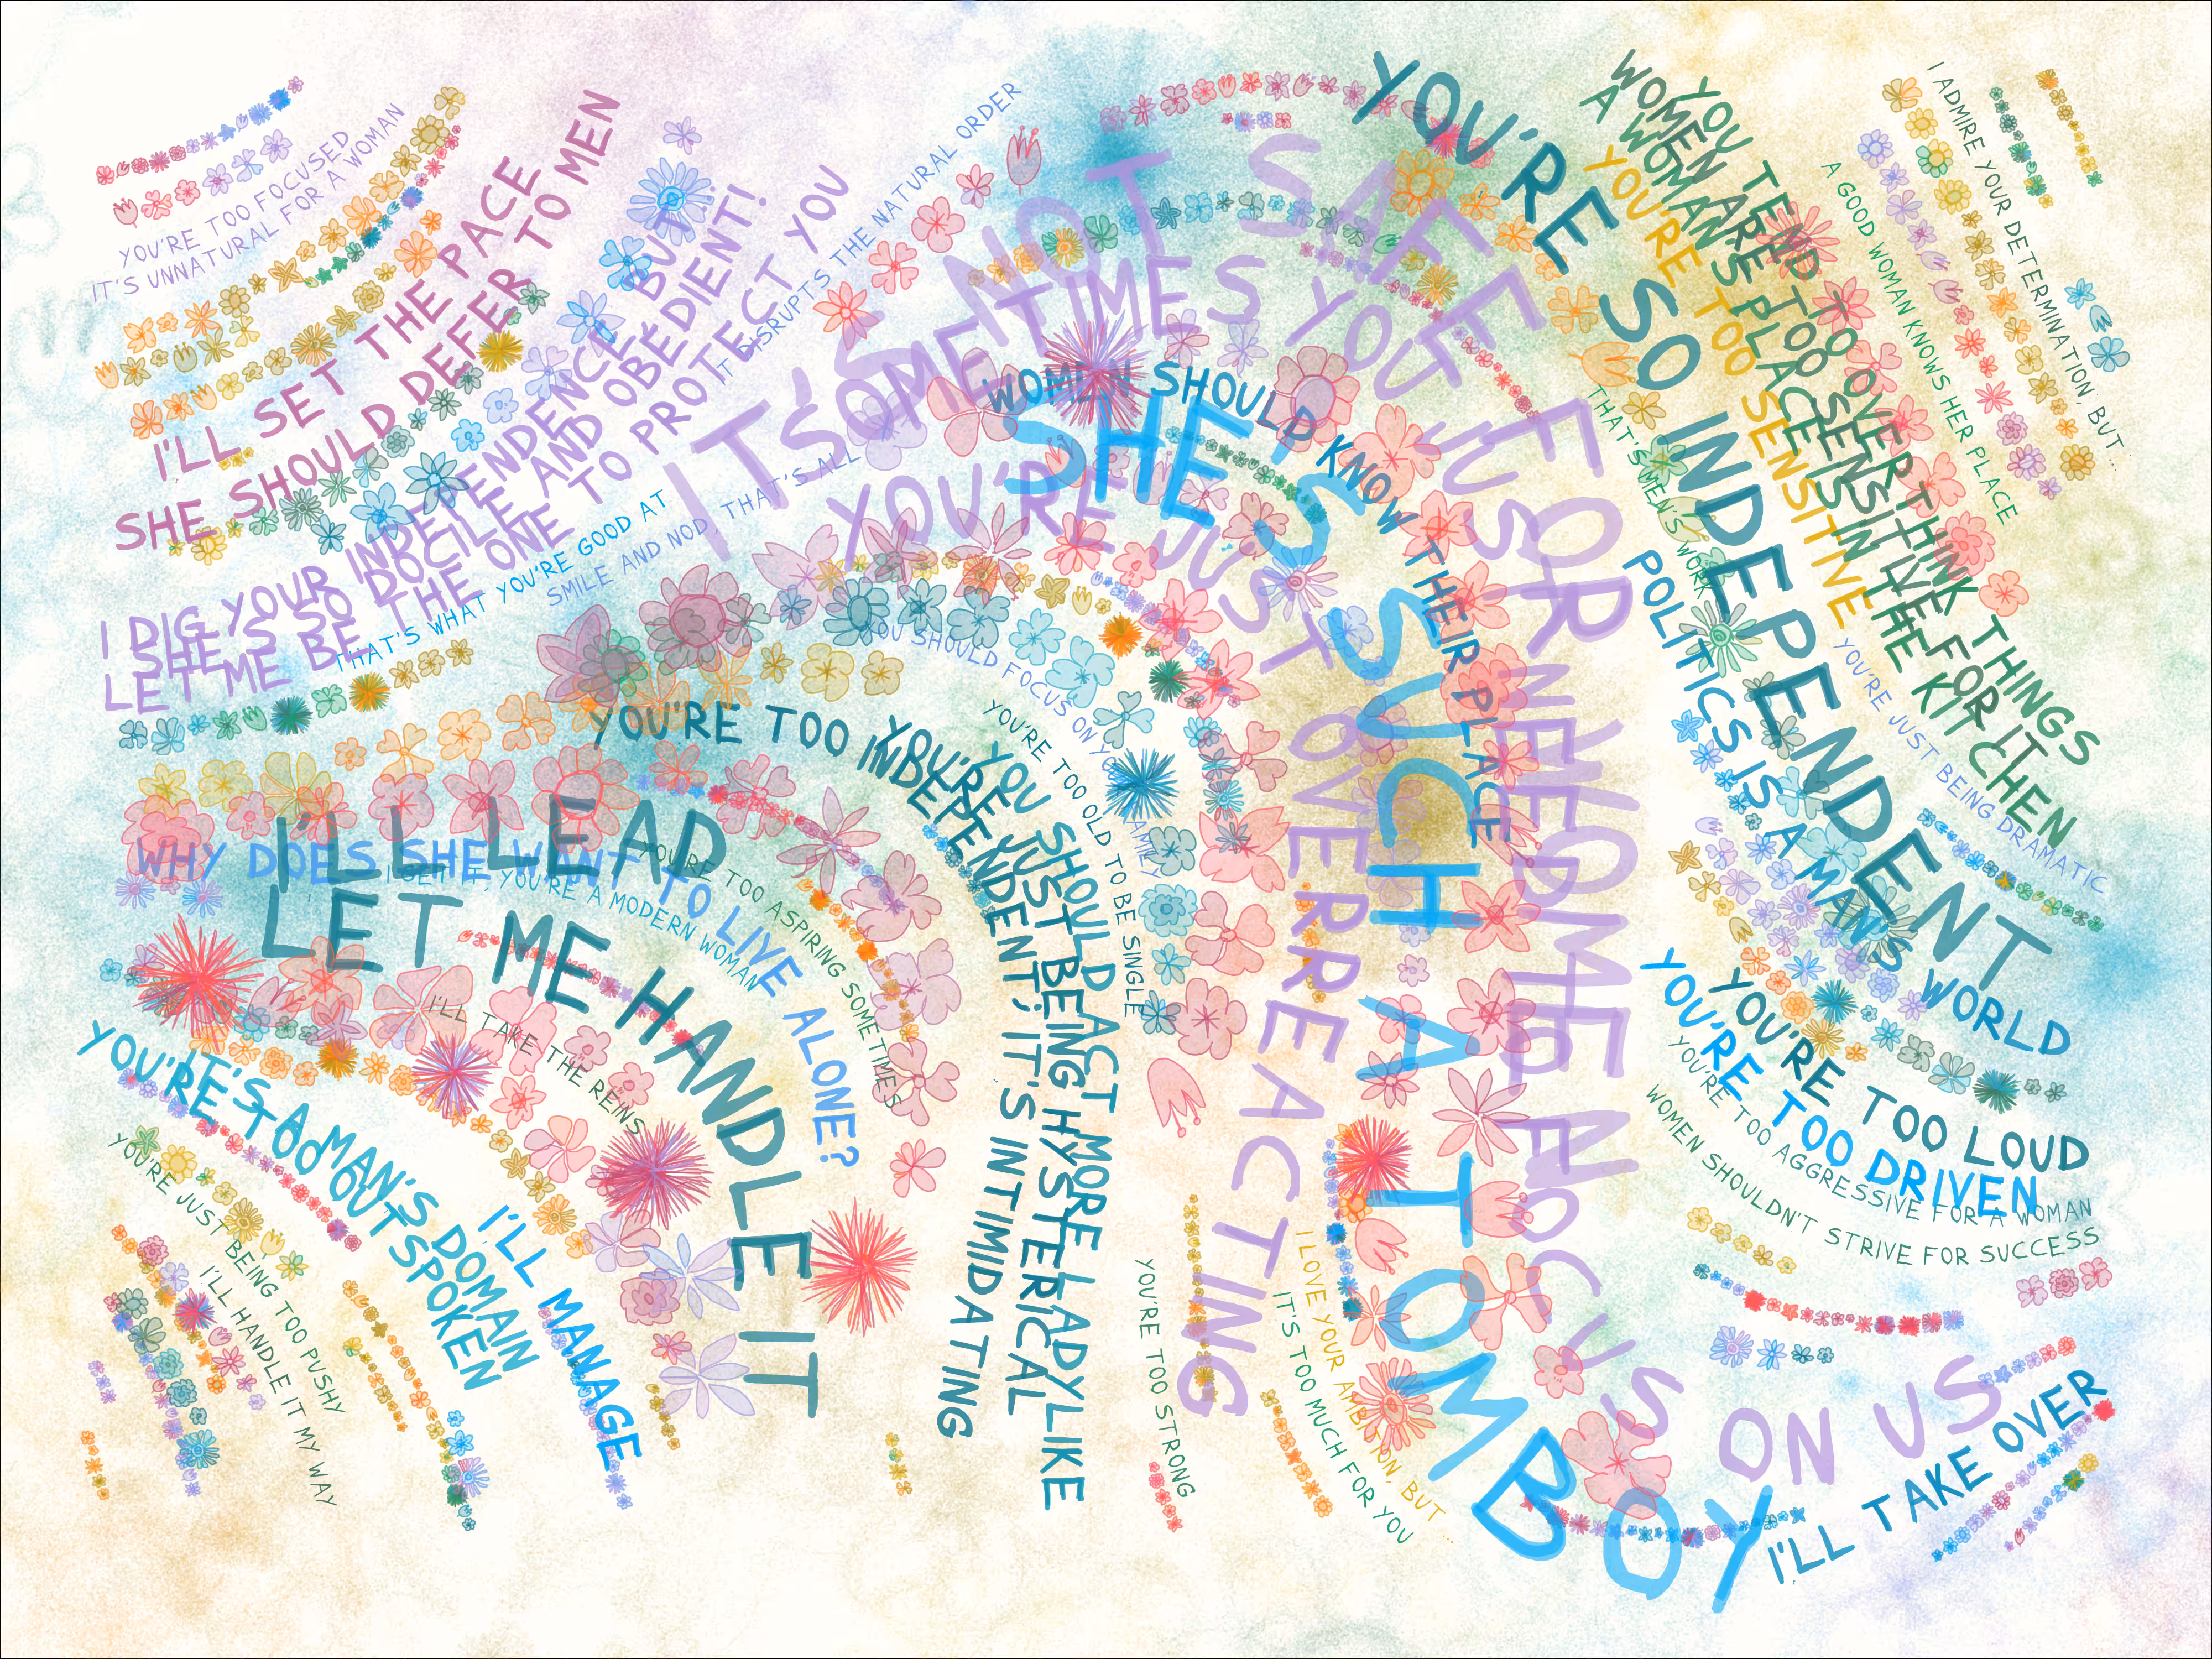 YOU'RE TOO FOCUSED
IT'S UNNATURAL FOR A WOMAN
I'LL SET THE PACE
SHE SHOULD DEFER TO MEN
I DIG YOUR INDEPENDENCE BUT...
SHE'S SO DOCILE AND OBEDIENT!
LET ME BE THE ONE TO PROTECT YOU
IT DISRUPTS THE NATURAL ORDER
THAT'S WHAT YOU'RE GOOD AT
SMILE AND NOD, THAT'S ALL
IT'S NOT SAFE FOR NEWCOME
SOMETIMES YOU JUST NEED TO FOCUS ON US
YOU'RE JUST OVERREACTING
WOMEN SHOULD KNOW THEIR PLACE
SHE'S SUCH A TOMBOY
YOU'RE SO INDEPENDENT
YOU TEND TO OVERTHINK THINGS
WOMEN ARE TOO SENSITIVE FOR IT
A WOMAN'S PLACE IS IN THE KITCHEN
YOU'RE TOO SENSITIVE
A GOOD WOMAN KNOWS HER PLACE
I ADMIRE YOUR DETERMINATION, BUT...
THAT'S MEN'S WORK
POLITICS IS A MAN'S WORLD
YOU'RE JUST BEING DRAMATIC
YOU SHOULD FOCUS ON YOUR FAMILY
YOU'RE TOO OLD TO BE SINGLE
YOU'RE TOO INDEPENDENT, IT'S INTIMIDATING
YOU'RE JUST BEING HYSTERICAL
YOU SHOULD ACT MORE LADYLIKE
I'LL LEAD
WHY DOES SHE WANT TO LIVE ALONE?
I GET IT, YOU'RE A MODERN WOMAN
YOU'RE TOO ASPIRING SOMETIMES
LET ME HANDLE IT
I'LL TAKE THE REINS
IT'S A MAN'S DOMAIN
YOU'RE TOO OUTSPOKEN
I'LL MANAGE
YOU'RE JUST BEING TOO PUSHY
I'LL HANDLE IT MY WAY
YOU'RE TOO STRONG
I LOVE YOUR AMBITION, BUT...
IT'S TOO MUCH FOR YOU
YOU'RE TOO LOUD
YOU'RE TOO DRIVEN
YOU'RE TOO AGGRESSIVE FOR A WOMAN
WOMEN SHOULDN'T STRIVE FOR SUCCESS
I'LL TAKE OVER